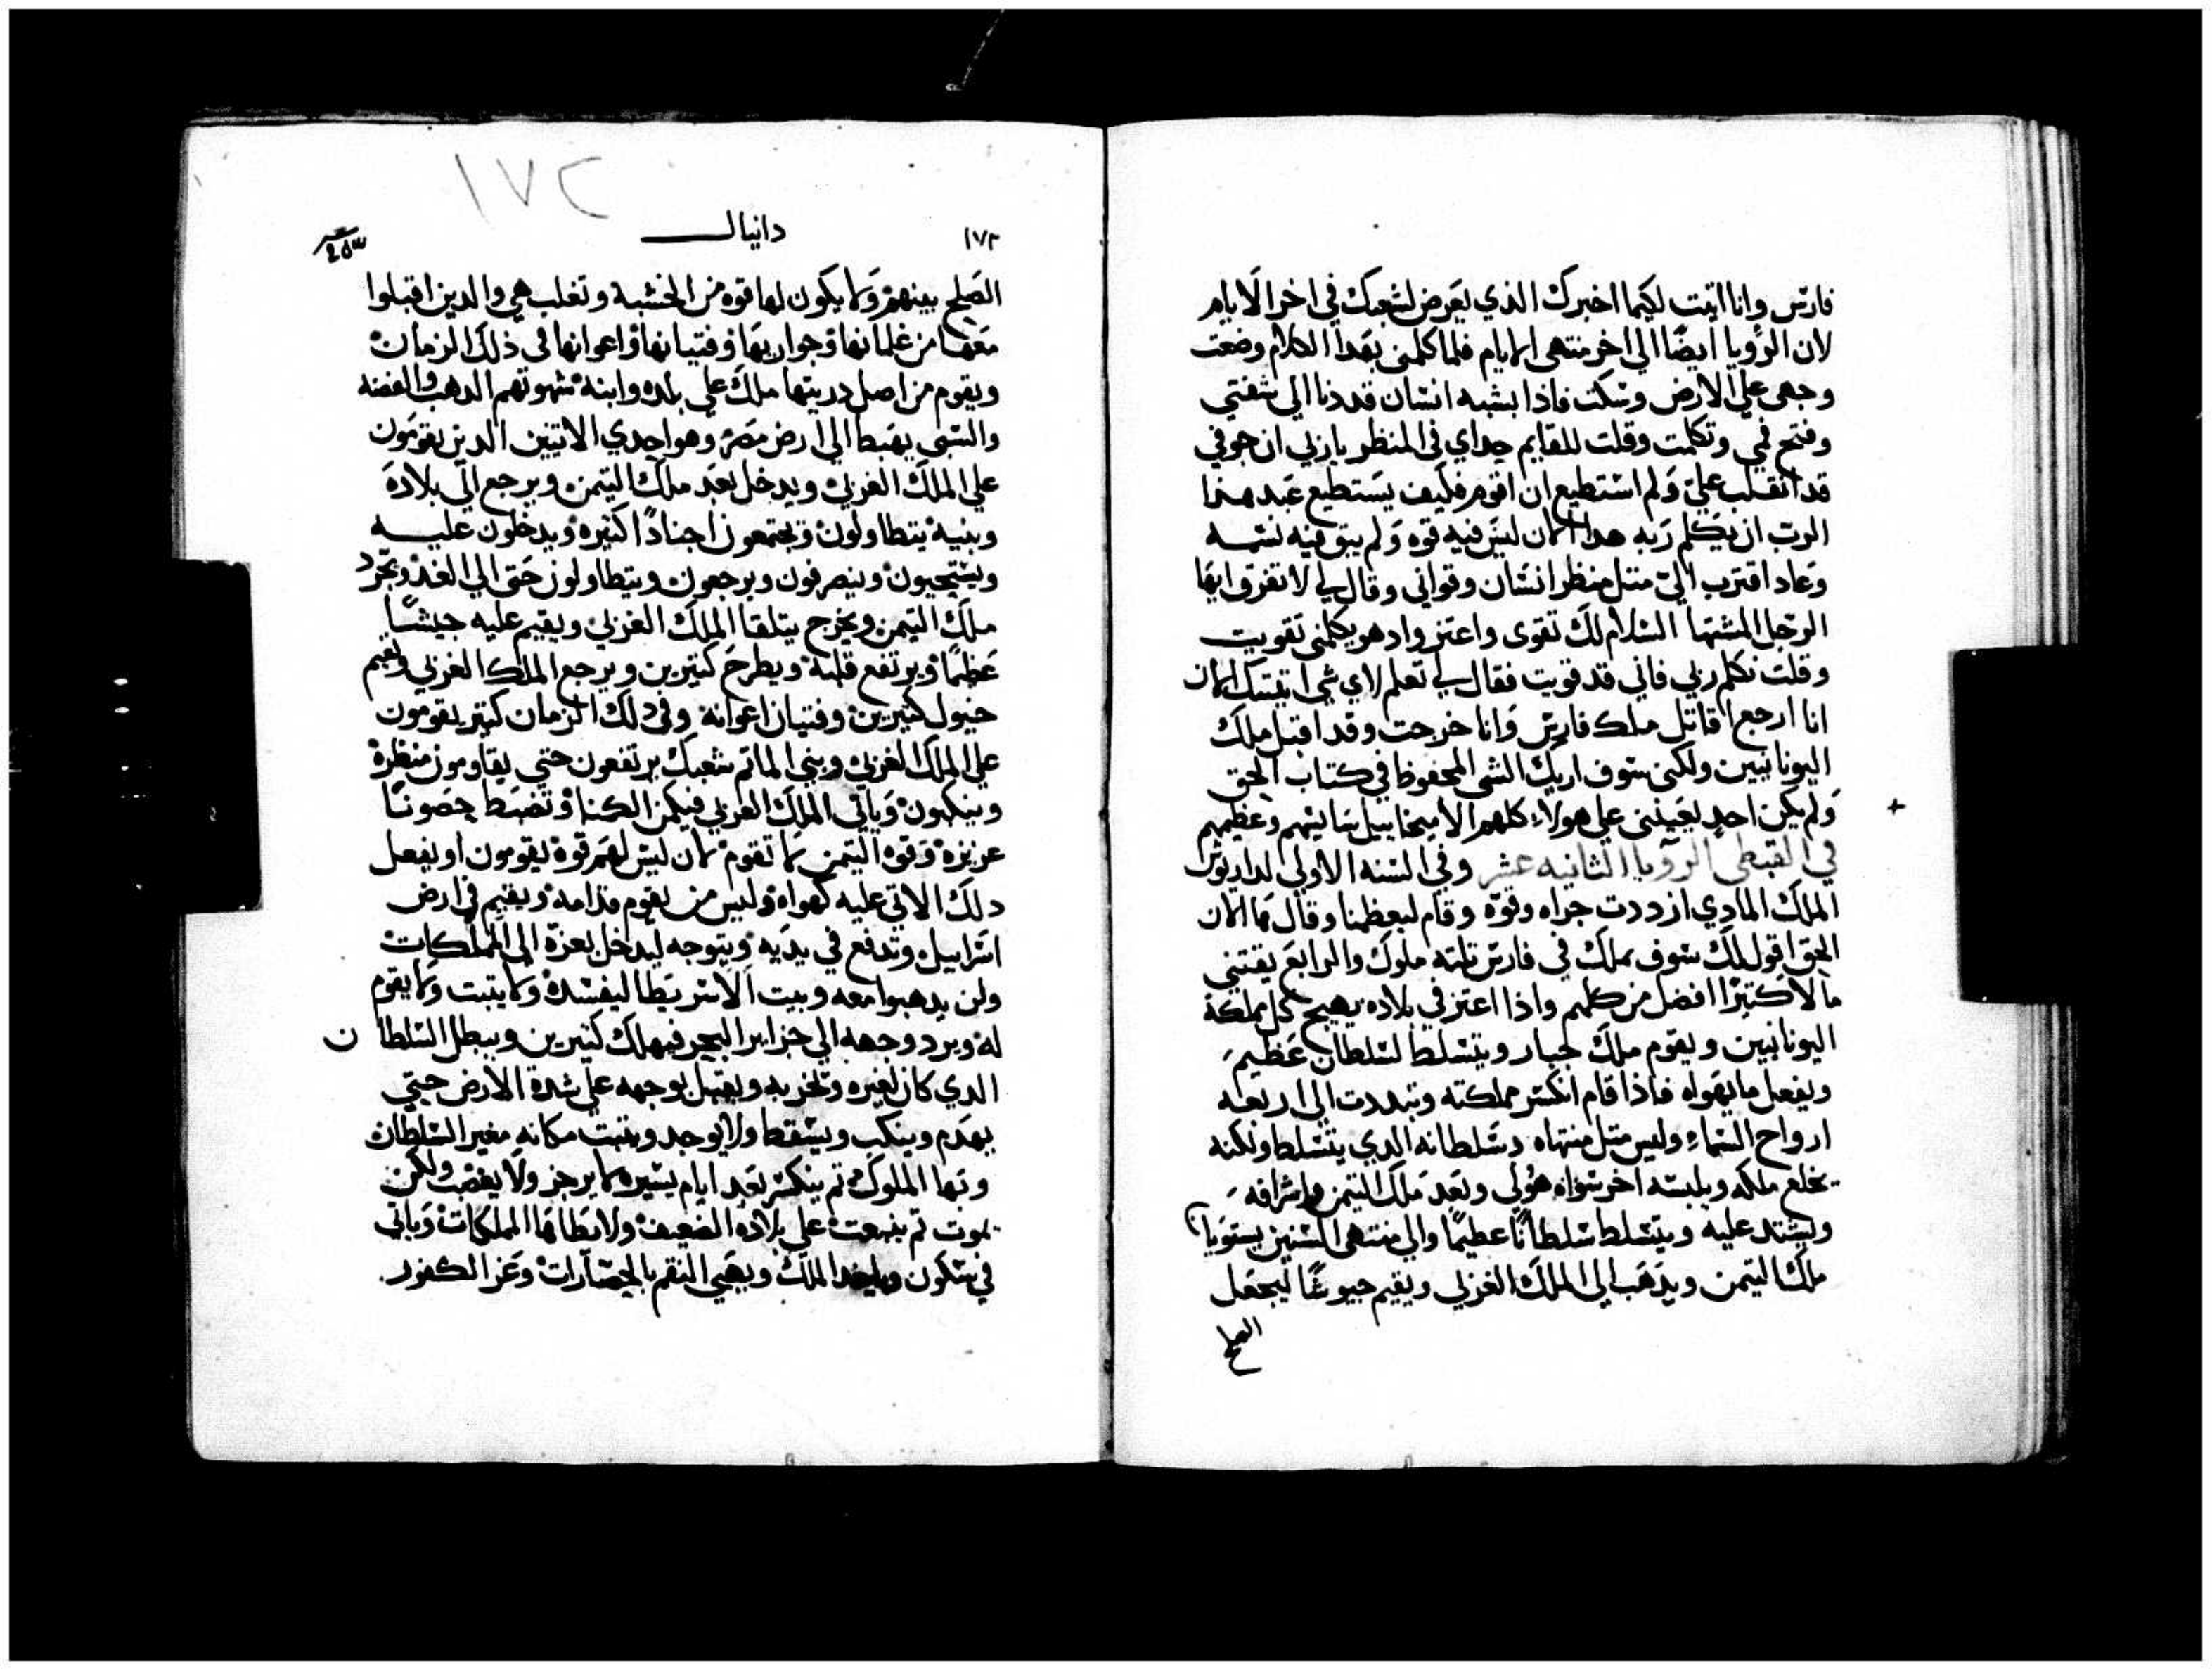 فارس وانا اتيت لكيما اخبرك الذي يعرض لشعبك في اخر الايام
لان الرويا ايضًا الي اخر منتهى الايام فلما كلمني بهدا الكلام وضعت
وجهي علي الارض وسكت فاذا بشبه انسان قد دنا الي شفتي
وفتح فمي وتكلمت وقلت للقايم حداي في المنظر يا ربي ان جوفي
قد انقلب عليّ ولم استطيع ان اقوم فكيف يستطيع عبد هذا
الرب ان يكلم ربه هدا الان ليس فيه قوه ولم يبق فيه نسمه
وعاد اقترب اليّ متل منظر انسان وقواني وقال لي لا تفرق ايها
الرجل المشتها السلام لك تقوى واعتز واد هو يكلمني تقويت
وقلت تكلم ربي فاني قد قويت فقال لي تعلم لاي شي اتيتك الان
انا ارجع اقاتل ملك فارس وانا خرجت وقد اقبل ملك
اليونانيين ولكني سوف اريك الشي المحفوظ في كتاب الحق
ولم يكن احد يعينني علي هولاء كلهم الا ميخاييل سايسهم وعظيمهم
في القبطي الرويا الثانيه عشر وفي السنه الاولي لداريوش
الملك المادي ازددت جراه وقوه وقام ليعظمنا وقال ها الان
الحق اقول لك سوف يملك في فارس تلته ملوك والرابع يقتني
مالًا كتيرًا افضل من كلهم واذا اعتز في بلاده يهيج كل مملكة
اليونانيين ويقوم ملك جبار ويتسلط لسلطان عظيم
ويفعل ما يهواه فاذا قام انكسر مملكته وتبددت الي اربعه
ارواح السماء وليس متل منتهاه دسلطانه الدي يتسلط ولكنه
يخلع ملكه ويلبسه اخر سواه هولي وبعد ملك التيمن واشرافه
ويشتد عليه ويتسلط سلطانًا عظيمًا والي منتهى السنين يستويا
ملك التيمن ويذهب الي الملك الغربي ويقيم جيوشًا ليجعل
الصلح
١٧٢
١٧٢ دانيال
الصلح بينهم ولا يكون لها قوه من الخشبة وتغلب هي والدين اقبلوا
معها من غلمانها وجواريها وفتيانها واعوانها في ذلك الزمان
ويقوم من اصل دريتها ملك علي بلده وابنه شهوتهم الدهب والفضه
والسبي يهبط الي ارض مصر وهو احدي الاتيين الدين يقومون
علي الملك الغربي ويدخل بعد ملك التيمن ويرجع الي بلاده
وبنيه يتطاولون ويجتمعون اجنادًا كتيره ويدخلون عليه
ويستحيون وينصرفون ويرجعون ويتطاولون حتى الي الغد ويحرد
ملك التيمن ويخرج يتلقا الملك الغربي ويقيم عليه جيشًا
عظيمًا ويرتفع قلبه ويطرح كتيرين ويرجع الملك الغربي ويقيم
خيول كتيرين وفتيان اعوانه وفي دلك الزمان كتير يقومون
علي الملك الغربي وبني الماتم شعبك يرتفعون حتي يقاومون منظرة
وينكبون وياتي الملك الغربي فيكمن الكمنا وتضبط حصونًا
عزيزه وقوة التيمن لا تقوم لان ليس لهم قوة يقومون او يفعل
دلك الاتي عليه كهواه وليس من يقوم قدامه ويقيم في ارض
اسراييل وتدفع في يديه ويتوجه ليدخل بعزة الي المملكات
ولن يدهبوا معه وبيت الاستريطا ليفسده ولا يتبت ولا يقوم
له ويرد وجهه الي جزاير البحر فيهلك كتيرين ويبطل السلطان
الدي كان لغيره وتخربه ويقبل بوجهه علي شدة الارض حتي
يهدم وينكب ويسقط ولا يوجد ويتبت مكانه مغير السلطان
وبها الملوك تم ينكسر بعد ايام يسيره لا يرجز ولا يغضب ولكن
يموت تم ينبعت علي بلاده الضعيف ولا يطاها المملكات وياتي
في سكون وياخد الملك ويهي النقم بالحصارات وعز الكفور